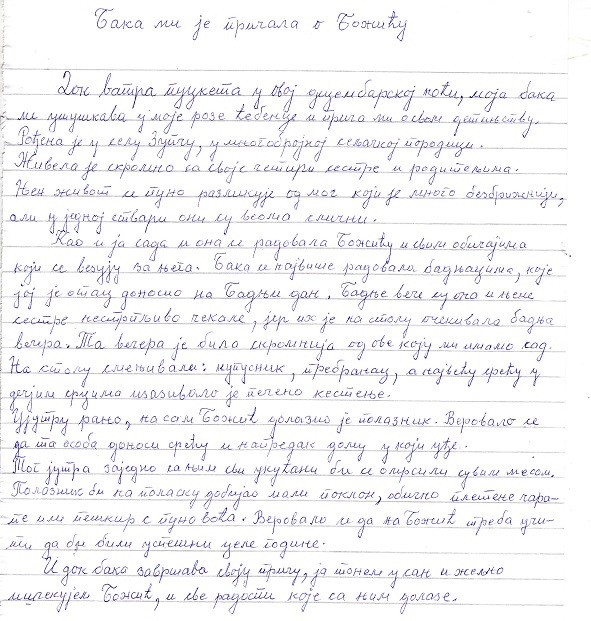 Бака ми је причала о Божићу
Док ватра пуцкета у овој децембарској ноћи, моја бака
ме ушушкава у моје розе ћебенце и прича ми о свом детињству.
Рођена је у селу Зупчу, у многобројној сељачкој породици.
Живела је скромно са своје четири сестре и родитељима.
Њен живот се пуно разликује од мог који је много безбрижнији,
али у једној ствари они су веома слични.
Као и ја сада и она се радовала Божићу и свим обичајима
који се везују за њега. Бака се највише радовала бадњацима, које
јој је отац доносио на Бадњи дан. Бадње вече су она и њене
сестре нестрпљиво чекале, јер их је на столу очекивала бадња
вечера. Та вечера је била скромнија од ове коју ми имамо сад.
На столу смењивали: купусник, пребранац, а највећу срећу у
дечјим срцима изазивало је печено кестење.
Ујутру рано, на сам Божић долазио је полазник. Веровало се
да та особа доноси срећу и напредак дому у који уђе.
Тог јутра заједно са њим сви укућани би се омрсили сувим месом.
Полазник би на поласку добијао мали поклон, обично плетене чара-
пе или пешкир с пуно воћа. Веровало се да на Божић треба учи-
ти да би били успешни целе године.
И док бака завршава своју причу, ја тонем у сан и жељно
ишчекујем Божић, и све радости које са њим долазе.